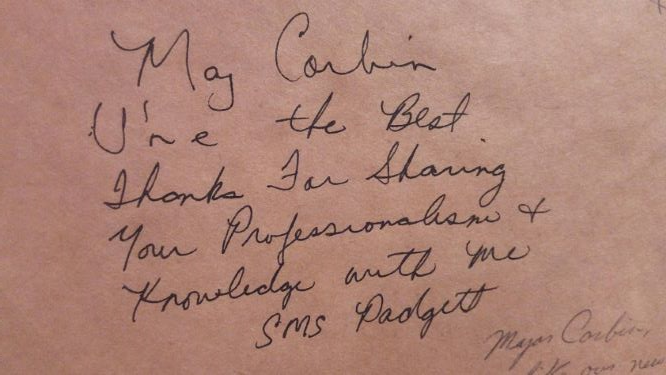 Maj Corbin
U're the Best
Thanks For Sharing
Your Professionalism &
Knowledge with Me
SMS Padgett
Major Corbin,
like our new